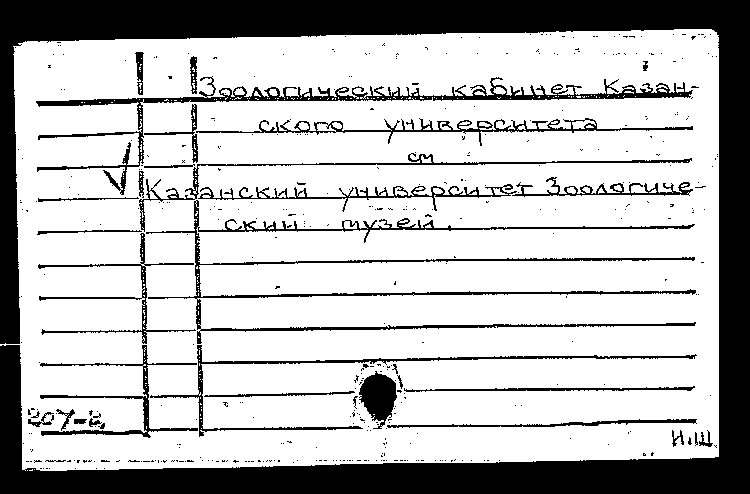 Зоологический кабинет Казан-
ского университета
см
Казанский университет Зоологиче-
ский музей.
207-2.
Н.Ш